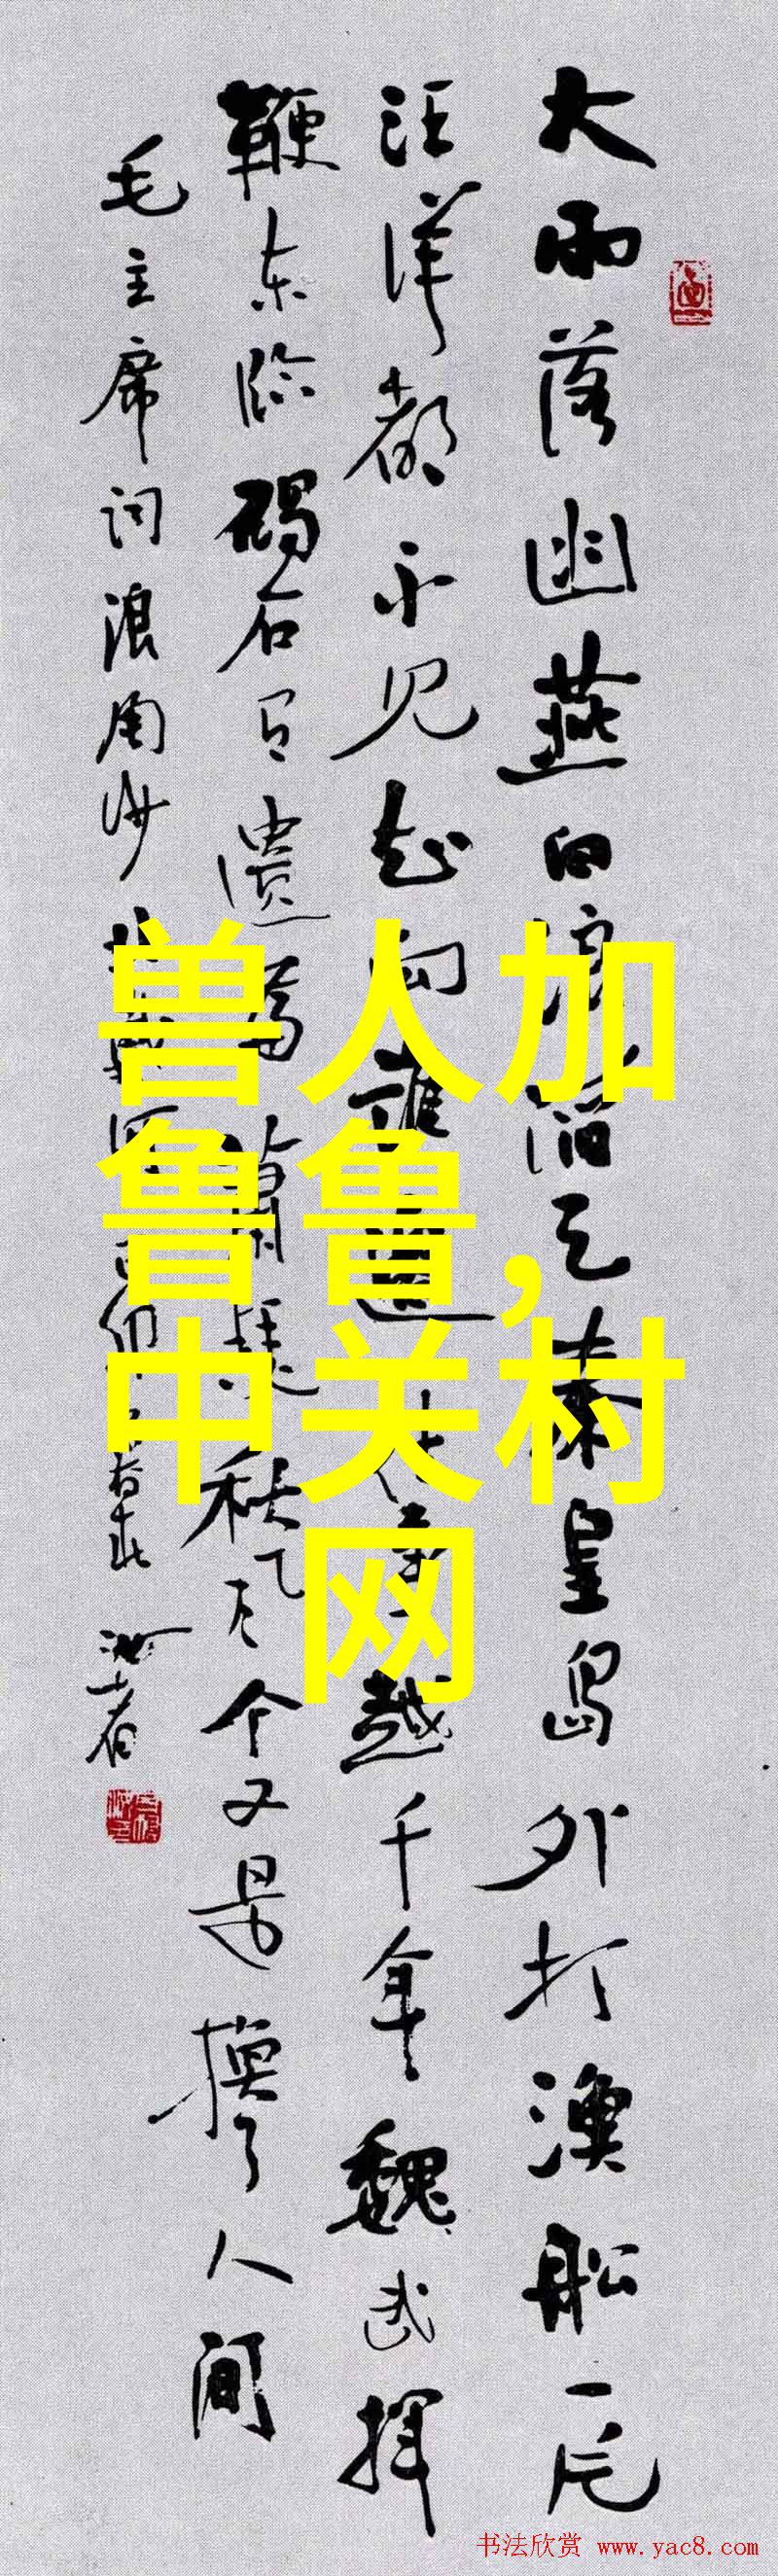 大雨落幽燕白浪滔天秦皇岛外打渔船一片
汪洋都不见知向谁边往事越千年魏武挥
鞭东临碣石有遗篇萧瑟秋风今又是换了人间
毛主席词浪淘沙北戴河己卯
兽人加
鲁鲁,
中关村
网
书法欣赏 www.yac8.com